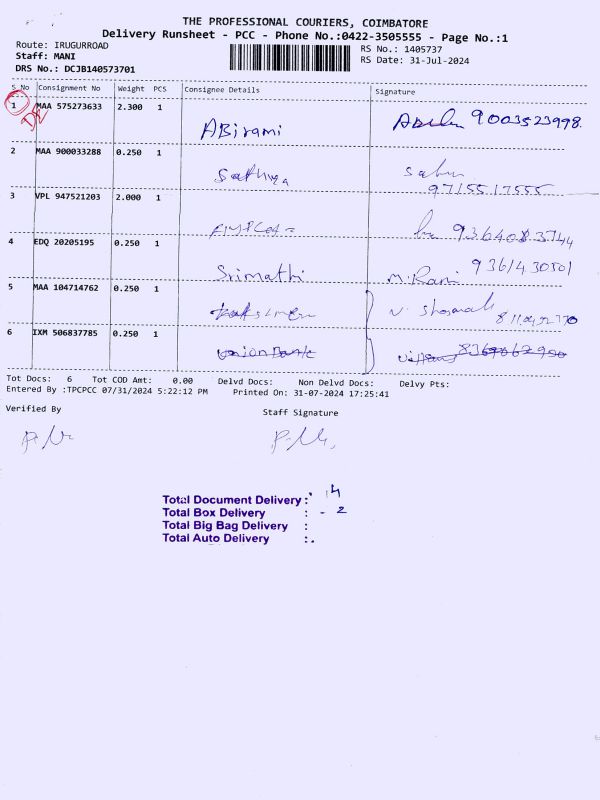 THE PROFESSIONAL COURIERS, COIMBATORE
Delivery Runsheet - PCC - Phone No.:0422-3505555 - Page No.:1
Route: IRUGURROAD
RS No.: 1405737
Staff: MANI
RS Date: 31-Jul-2024
DRS No.: DCJB140573701
S No Consignment No Weight PCS Consignee Details Signature
1 MAA 575273633 2.300 1
ABirami 9003523998
2 MAA 900033288 0.250 1
Sathiya
9715517555
3 VPL 947521203 2.000 1
4 EDQ 20205195 0.250 1
Srimathi M.Rani
5 MAA 104714762 0.250 1
6 IXM 506837785 0.250 1
Union Bank
Tot Docs: 6 Tot COD Amt: 0.00 Delvd Docs: Non Delvd Docs: Delvy Pts:
Entered By :TPCPCC 07/31/2024 5:22:12 PM Printed On: 31-07-2024 17:25:41
Verified By
Staff Signature
Total Document Delivery : 4
Total Box Delivery : - 2
Total Big Bag Delivery :
Total Auto Delivery :